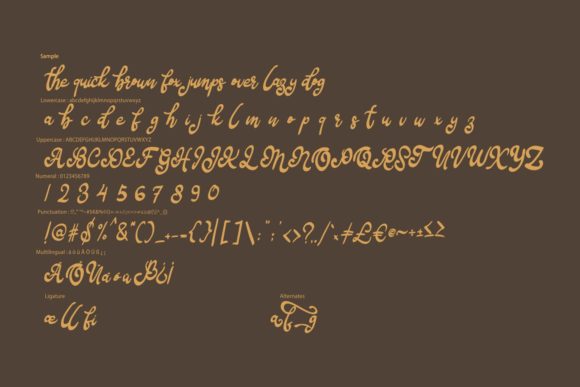 Sample
the quick brown fox jumps over lazy dog
Lowercase : abcdefghijklmnopqrstuvwxyz
a b c d e f g h i j k l m n o p q r s t u v w x y z
Uppercase : ABCDEFGHIJKLMNOPQRSTUVWXYZ
A B C D E F G H I J K L M N O P Q R S T U V W X Y Z
Numeral : 0123456789
1 2 3 4 5 6 7 8 9 0
Punctuation :
!@#$%^&*()_+--={}|[]\:";'<>?,./
Multilingual :
Ligature
æ ll fi
Alternates